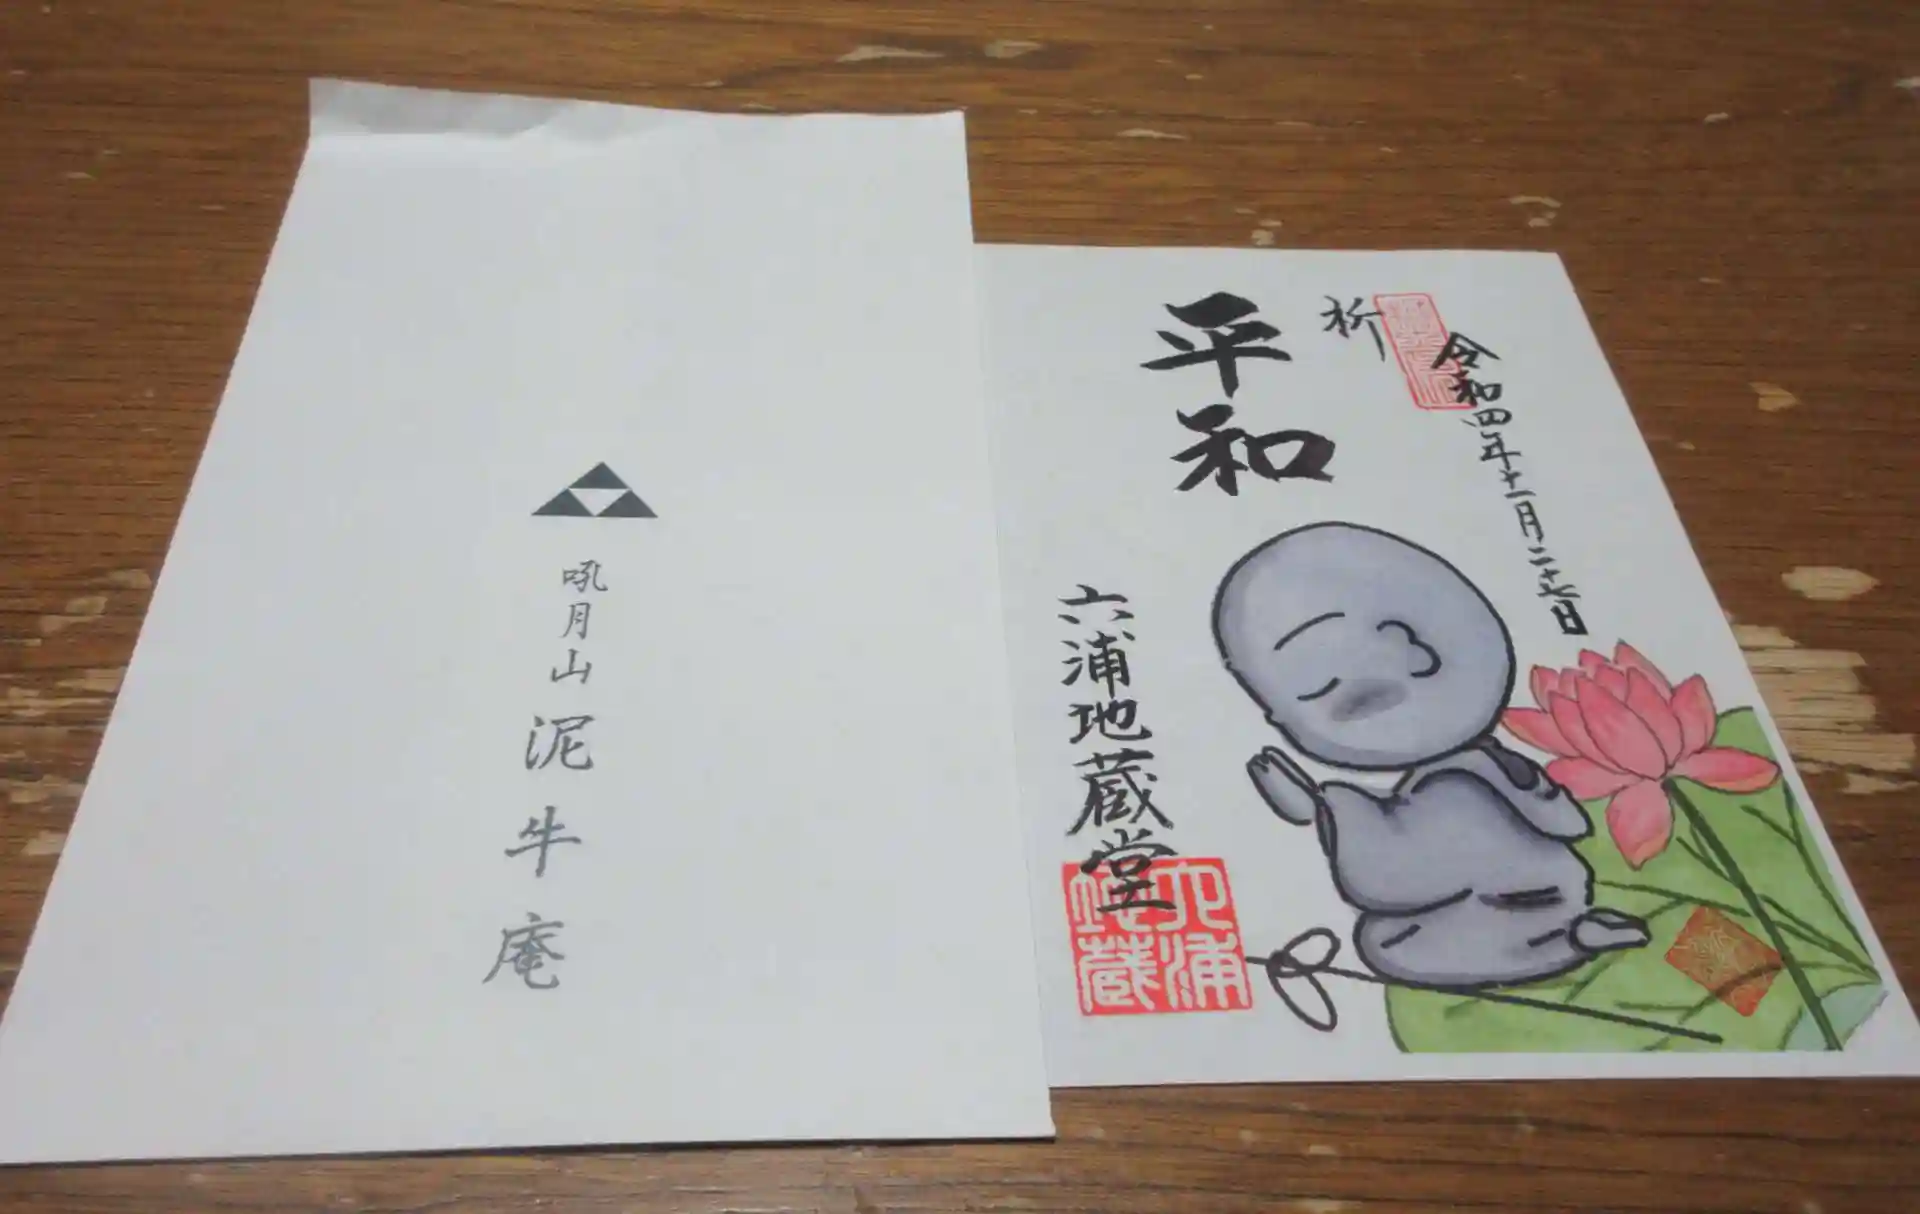 吼月山
泥牛庵
令和四年十一月二十七日
祈
平和
六浦地蔵堂
六浦
地蔵